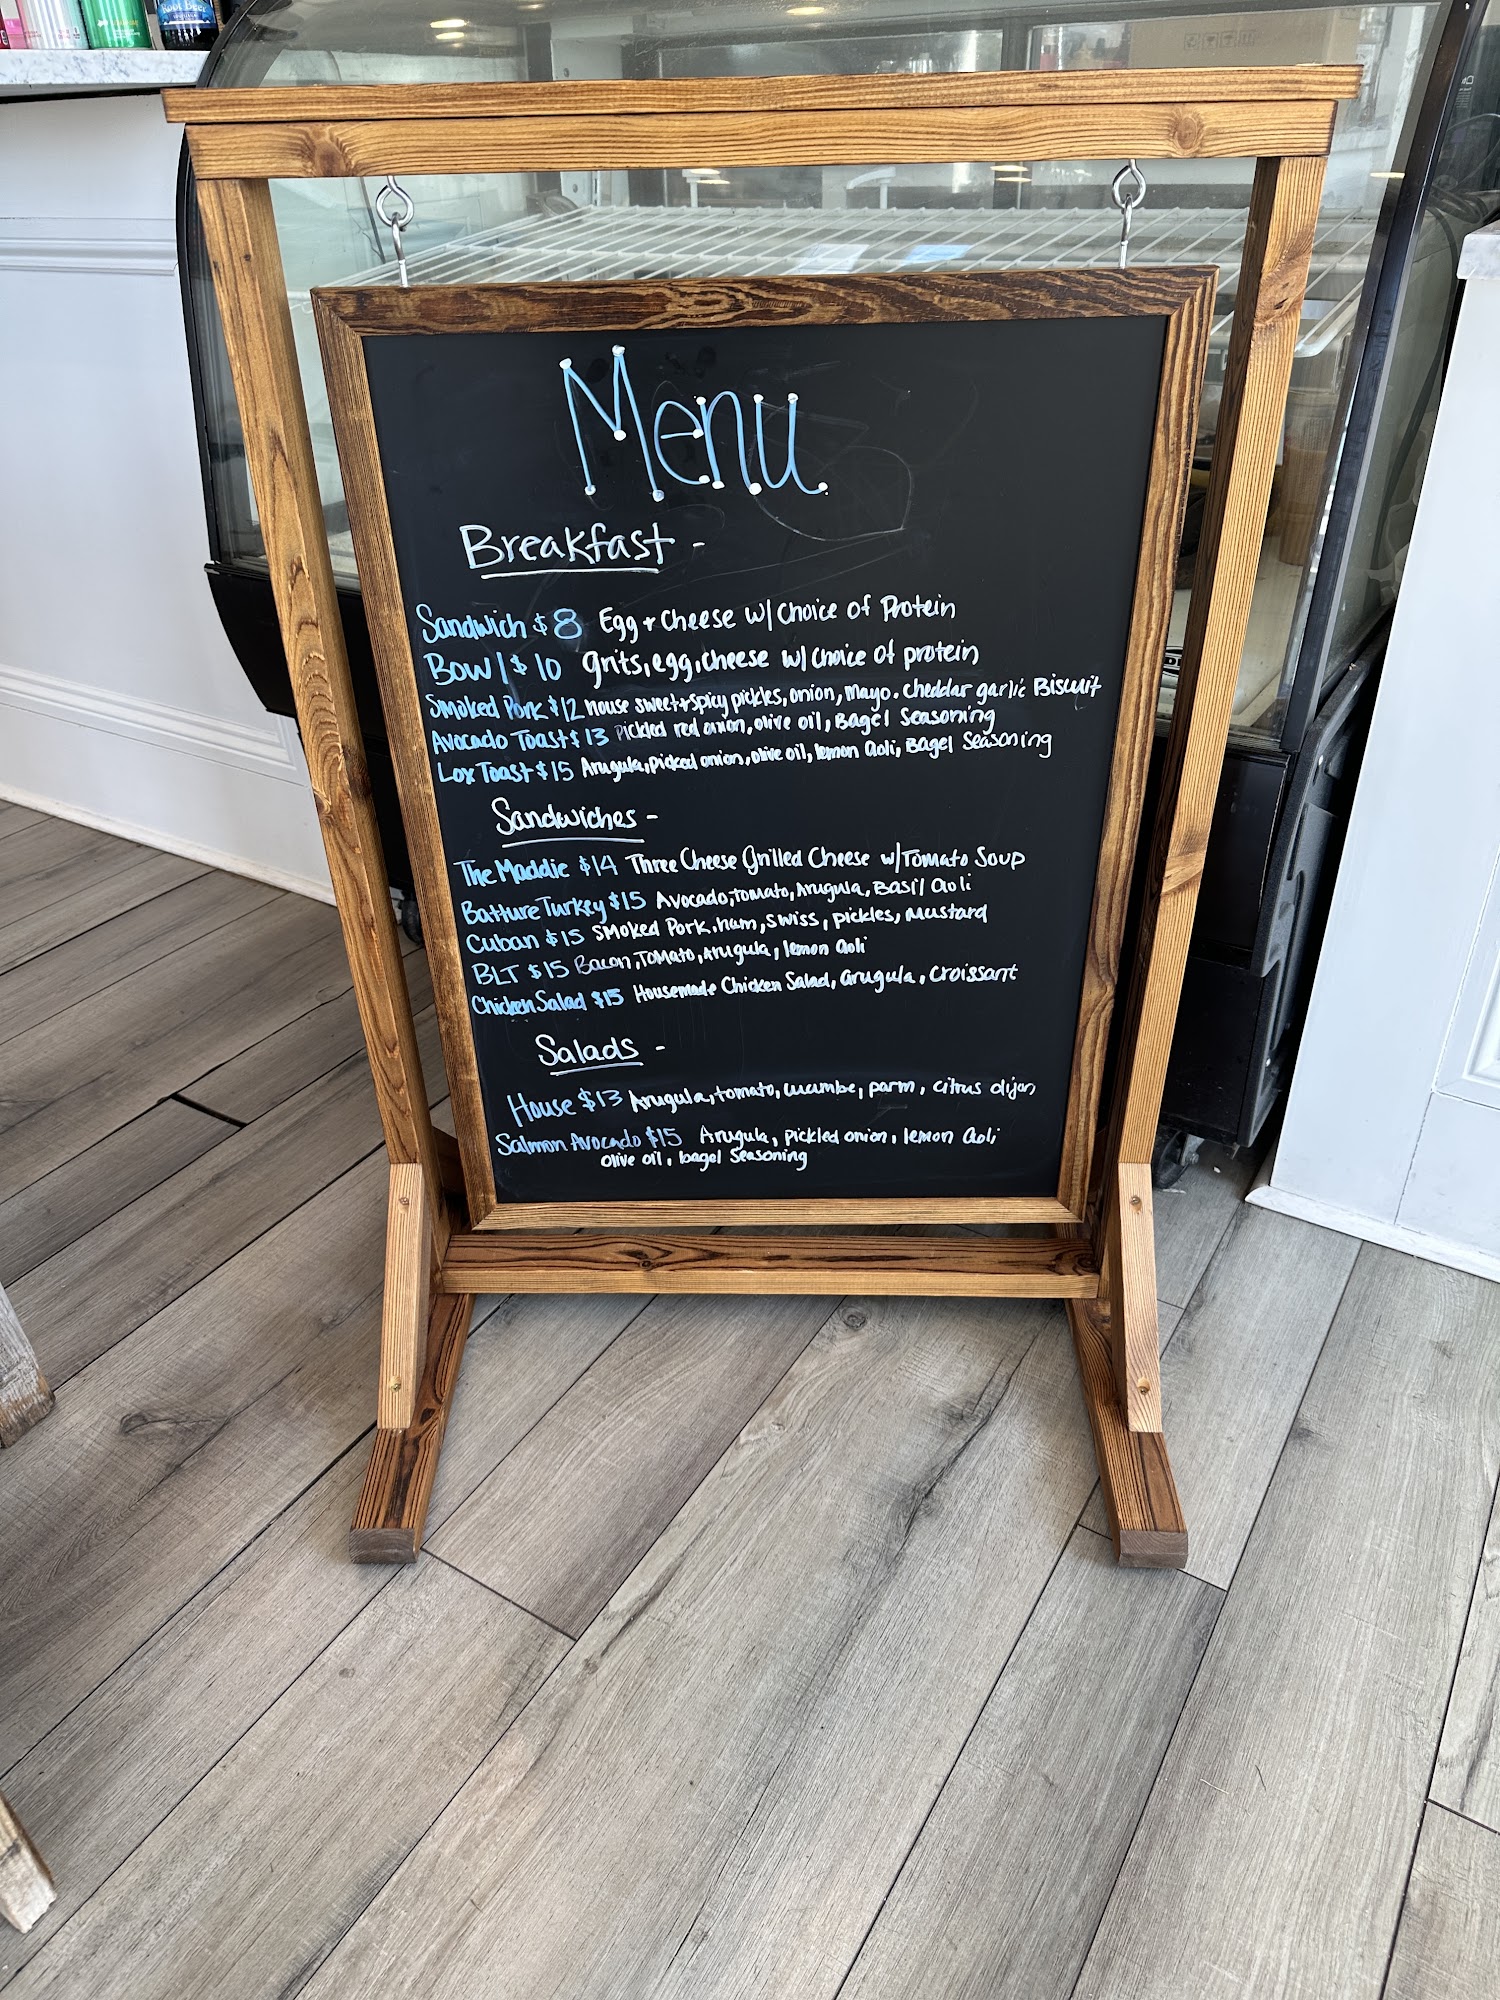 Root Beer
Menu
Breakfast -
Sandwich $8 Egg + Cheese w/ Choice of Protein
Bowl $10 grits, egg, cheese w/ choice of protein
Smoked Pork $12 House sweet + spicy pickles, onion, mayo. cheddar garlic Biscuit
Avocado Toast $13 Pickled red onion, olive oil, Bagel Seasoning
Lox Toast $15 Arugula, picked onion, olive oil, lemon aoli, Bagel Seasoning
Sandwiches -
The Maddie $14 Three Cheese Grilled Cheese w/ Tomato Soup
Batture Turkey $15 Avocado, tomato, Arugula, Basil aoli
Cuban $15 Smoked Pork, ham, swiss, pickles, mustard
BLT $15 Bacon, Tomato, Arugula, lemon aoli
Chicken Salad $15 Housemade Chicken Salad, arugula, croissant
Salads -
House $13 Arugula, tomato, cucumbe, parm, citrus dijon
Salmon Avocado $15 Arugula, pickled onion, lemon aoli
olive oil, bagel Seasoning